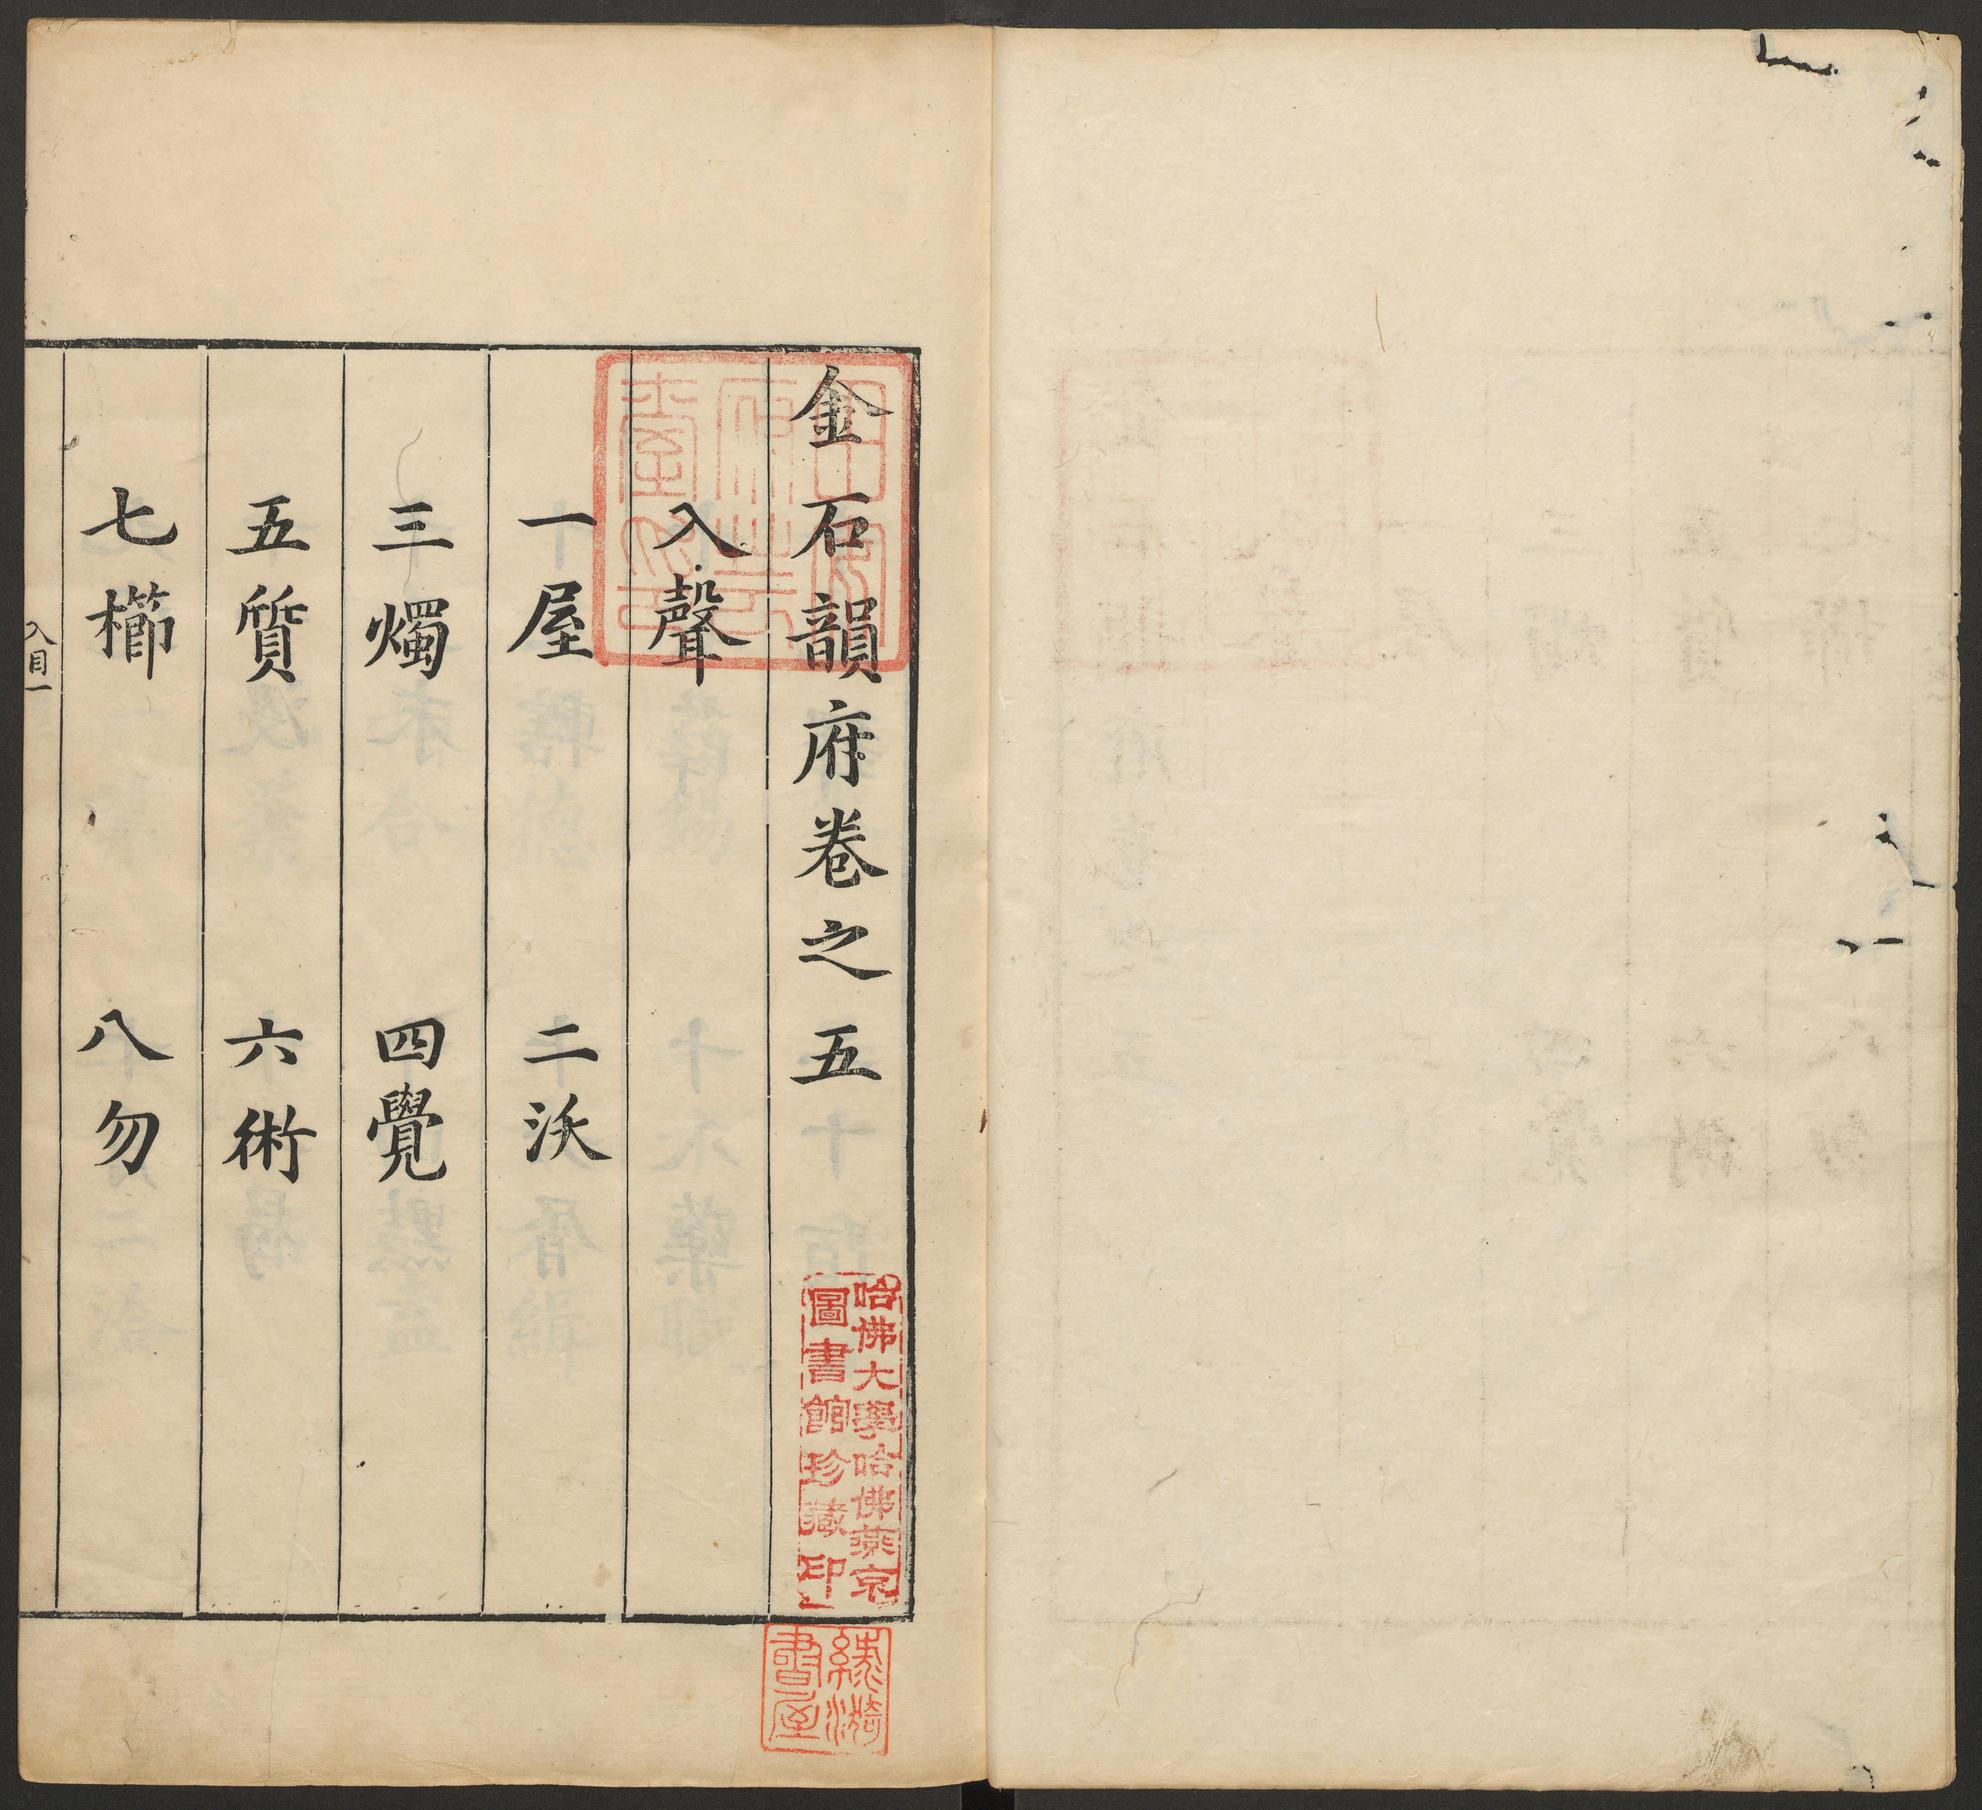 金石韻府卷之五
入聲
一屋 二沃
三燭 四覺
五質 六術
七櫛 八勿
入目一
哈佛大學哈佛燕京
圖書館珍藏印
書屋